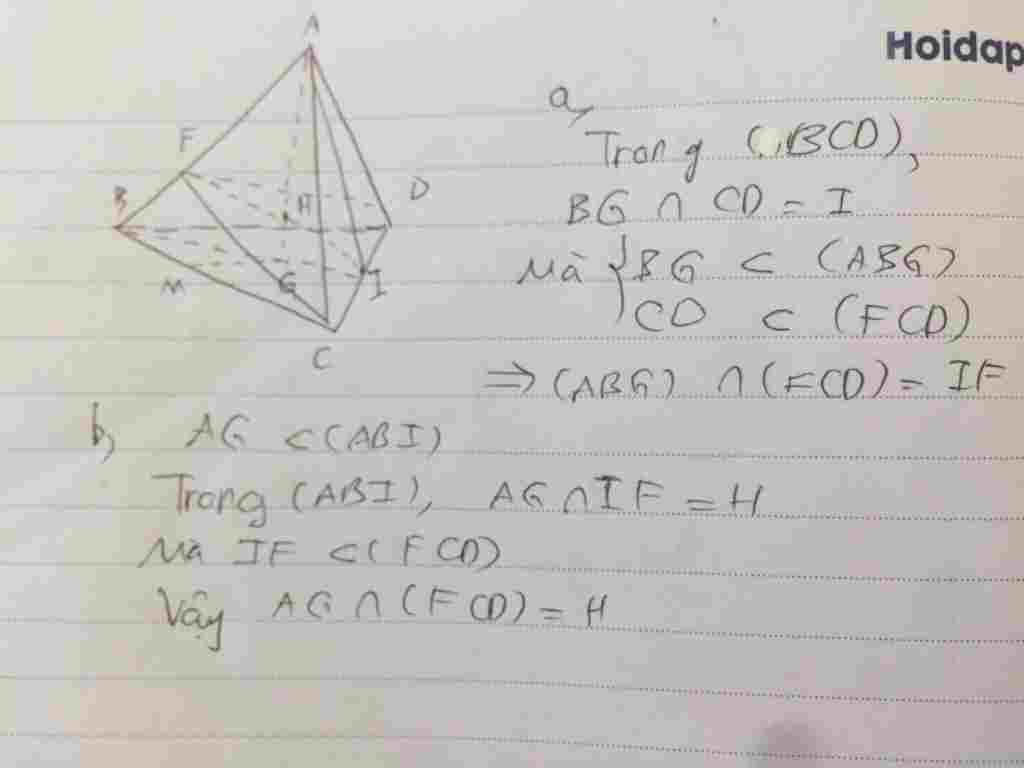 Hoidap
A
F
B
H
D
M
G
I
C
a,
Trong (BCD),
BG ∩ CD = I
Mà { BG ⊂ (ABG)
CD ⊂ (FCD)
⇒ (ABG) ∩ (FCD) = IF
b, AG ⊂ (ABI)
Trong (ABI), AG ∩ IF = H
Mà IF ⊂ (FCD)
Vậy AG ∩ (FCD) = H